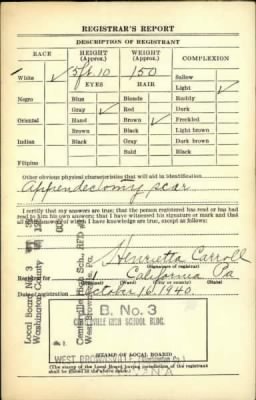 REGISTRAR'S REPORT
DESCRIPTION OF REGISTRANT
RACE HEIGHT (Approx.) WEIGHT (Approx.) COMPLEXION
White ✓ 5ft. 10 150 Sallow
EYES HAIR Light ✓
Negro Blue Blonde Ruddy
Gray ✓ Red ✓ Dark
Oriental Hazel Brown Freckled
Brown Black Light brown
Indian Black Gray Dark brown
Bald Black
Filipino
Other obvious physical characteristics that will aid in identification
Appendectomy scar.
I certify that my answers are true; that the person registered has read or has had
read to him his own answers; that I have witnessed his signature or mark and that
of his answers of which I have knowledge are true, except as follows:
Local Board No. 3
Washington County
Centerville High Sch., RFD #1
West Brown
Henrietta Carroll
(Signature of registrar)
Registrar for #1 California Pa
Date of registration October 16, 1940.
B. No. 3
CENTERVILLE HIGH SCHOOL BLDG.
WEST BROWNSVILLE
STAMP OF LOCAL BOARD)
(The stamp of the Local Board having jurisdiction of the registrant
shall be placed in the above space)